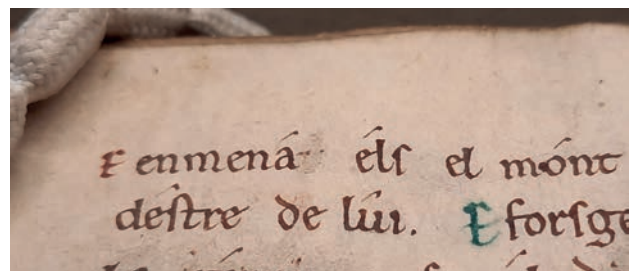 E enmená éls el mónt
déstre de lúi. E forsge